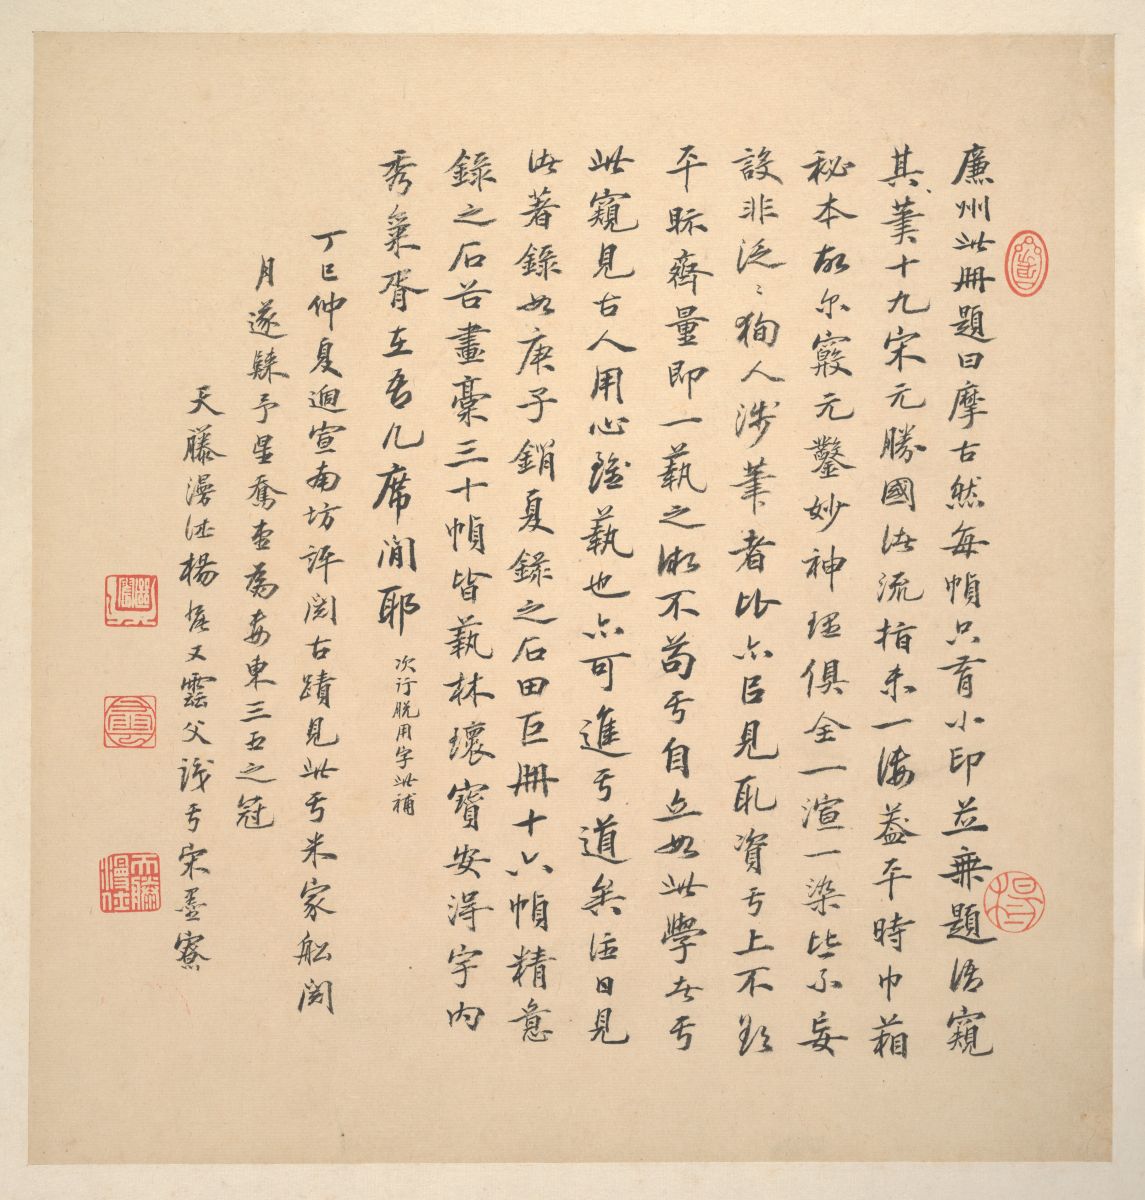 廉州此冊題曰摩古然每幀只有小印並無題語窺
其葉十九宋元勝國諸流指未一潘蓋平時巾箱
秘本故尔窮元鑿妙神理俱全一渲一染皆不妄
設非泛泛狥人涉筆者比亦臣見取資于上不欺
平眎齊量即一蓺之微不苟于自立如此學者于
此窺見古人用心雖蓺也亦可進于道矣往日見
諸著錄如庚子銷夏錄之石田巨冊十六幀精意
錄之石谷畫稾三十幀皆蓺林瓌寶安得宇內
秀氣胥在吾几席間耶
次行脫用字此補
丁巳仲夏過宣南坊評閱古蹟見此于米家船閱
月遂歸予星奪壺為安東三五之冠
天籐漫仕楊又雲父識于宋墨寮